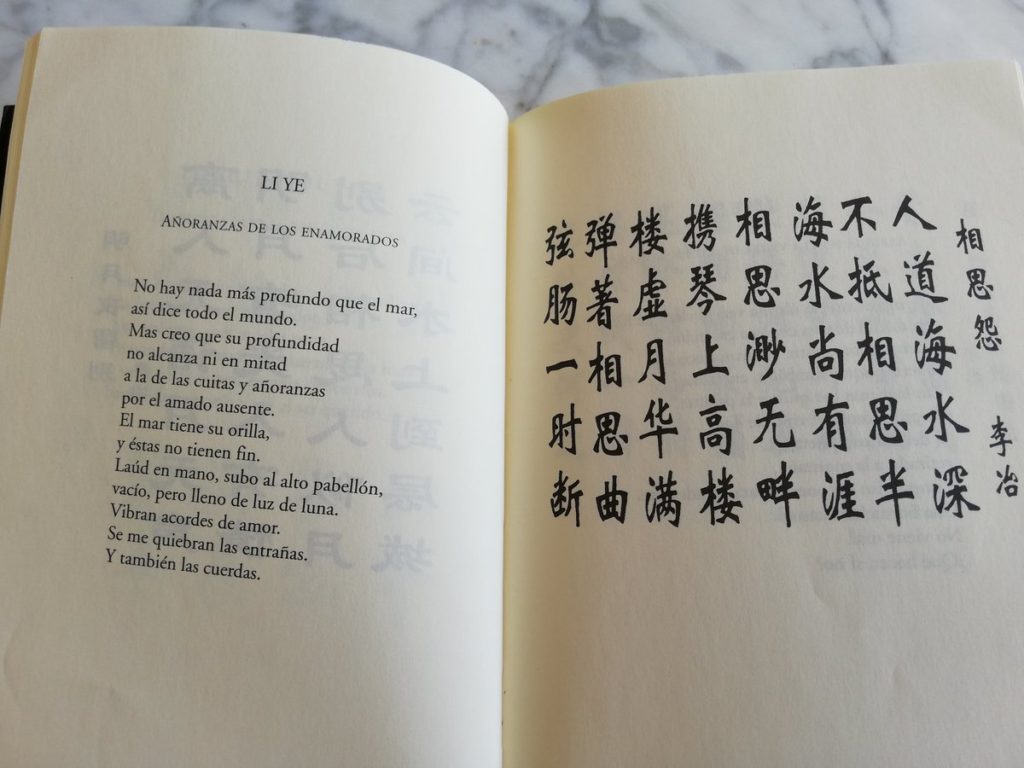 LI YE
AÑORANZAS DE LOS ENAMORADOS
No hay nada más profundo que el mar,
así dice todo el mundo.
Mas creo que su profundidad
no alcanza ni en mitad
a la de las cuitas y añoranzas
por el amado ausente.
El mar tiene su orilla,
y éstas no tienen fin.
Laúd en mano, subo al alto pabellón,
vacío, pero lleno de luz de luna.
Vibran acordes de amor.
Se me quiebran las entrañas.
Y también las cuerdas.
相思怨 李冶
人道海水深
不抵相思半
海水尚有涯
相思渺无畔
携琴上高楼
楼虚月华满
弹著相思曲
弦肠一时断